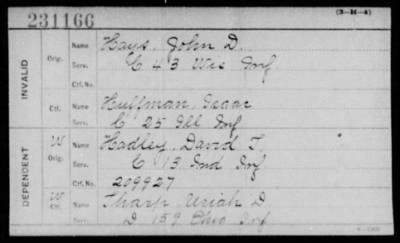 231166
(3-H-4)
INVALID
Orig.
Name Hays, John D.
Serv. C 43 Wis Inf.
Ctf. No.
Ctf.
Name Huffman, Isaac
Serv. C 25 Ill Inf
DEPENDENT
W
Orig.
Name Hadley, David T.
Serv. C 13 Ind Inf
Ctf. No. 209927
W
Ctf.
Name Tharp Uriah D
Serv. D 159 Ohio Inf